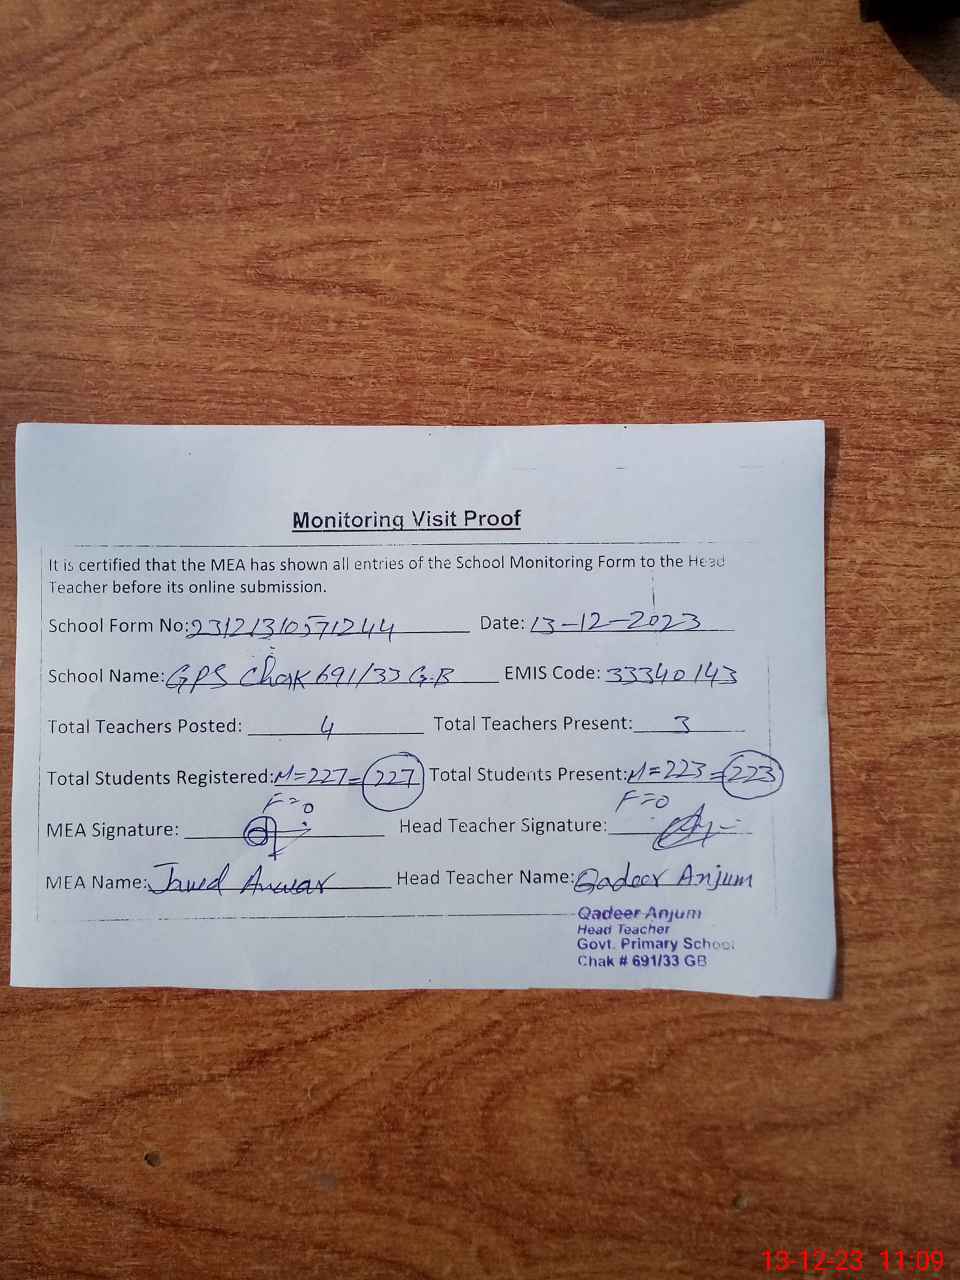 Monitoring Visit Proof
It is certified that the MEA has shown all entries of the School Monitoring Form to the Head
Teacher before its online submission.
School Form No: 23121310571244 Date: 13-12-2023
School Name: GPS Chak 691/33 G.B EMIS Code: 33340143
Total Teachers Posted: 4 Total Teachers Present: 3
Total Students Registered: M=227=227 Total Students Present: M=223=223
F=0 F=0
MEA Signature: Head Teacher Signature:
MEA Name: Javed Anwar Head Teacher Name: Qadeer Anjum
Qadeer Anjum
Head Teacher
Govt. Primary School
Chak # 691/33 GB
13-12-23 11:09